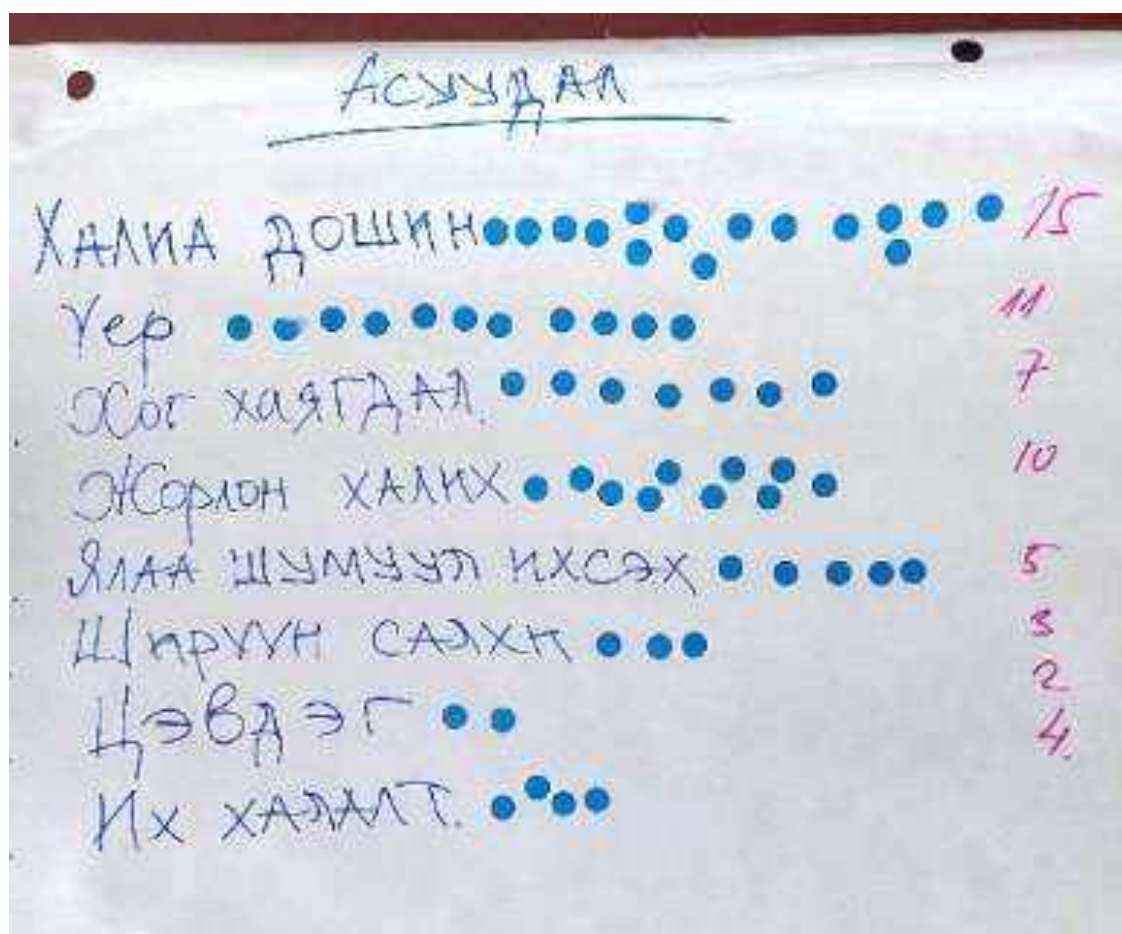 Асуудал
Халиа дошин 15
Үер 11
Хог хаягдал. 7
Жорлон халих 10
Ялаа шумуул ихсэх 5
Ширүүн салхи 3
Цэвдэг 2
Их халалт. 4.